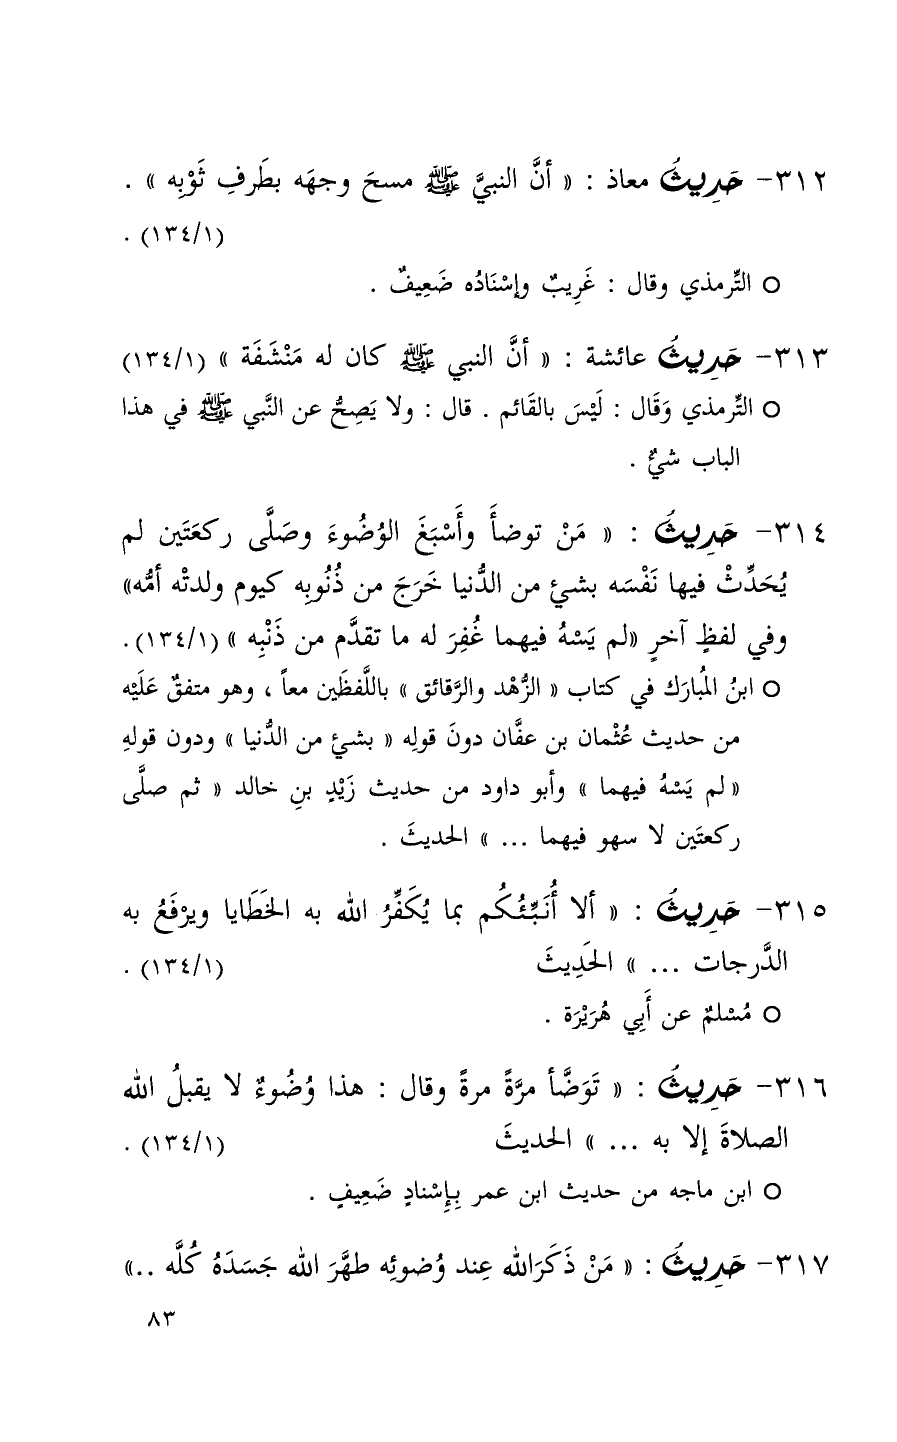 ٣١٢- حَدِيثُ معاذ : « أنَّ النبيَّ ﷺ مسحَ وجهَه بطَرفِ ثَوْبِه » .
(١٣٤/١) .
○ التِّرمذي وقال : غَرِيبٌ وإسْنَادُه ضَعِيفٌ .
٣١٣- حَدِيثُ عائشة : « أنَّ النبي ﷺ كان له مَنْشَفَة » (١٣٤/١)
○ التِّرمذي وَقَال : لَيْسَ بالقَائم . قال : ولا يَصِحُّ عن النَّبي ﷺ في هذا
الباب شيٌّ .
٣١٤- حَدِيثُ : « مَنْ توضأَ وأَسْبَغَ الوُضُوءَ وصَلَّى ركعَتَين لم
يُحَدِّثْ فيها نَفْسَه بشئٍ من الدُّنيا خَرَجَ من ذُنُوبِه كيوم ولدتْه أمُّه»
وفي لفظٍ آخرٍ «لم يَسْهُ فيهما غُفِرَ له ما تقدَّم من ذَنْبِه » (١٣٤/١).
○ ابنُ المُبارَك في كتاب « الزُّهْد والرَّقائق » باللَّفظَين معاً ، وهو متفقٌ عَلَيْه
من حديث عُثْمان بن عفَّان دونَ قولِه « بشئٍ من الدُّنيا » ودون قولهِ
« لم يَسْهُ فيهما » وأبو داود من حديث زَيْدٍ بنِ خالد « ثم صلَّى
ركعتَين لا سهو فيهما ... » الحديثَ .
٣١٥- حَدِيثُ : « ألا أُنَبِّئُكُم بما يُكَفِّرُ الله به الخَطَايا ويرْفَعُ به
الدَّرجات ... » الحَدِيثَ (١٣٤/١) .
○ مُسْلمٌ عن أَبِي هُرَيْرَة .
٣١٦- حَدِيثُ : « تَوَضَّأ مرَّةً مرةً وقال : هذا وُضُوءٌ لا يقبلُ الله
الصلاةَ إلا به ... » الحديثَ (١٣٤/١) .
○ ابن ماجه من حديث ابن عمر بِإِسْنادٍ ضَعِيفٍ .
٣١٧- حَدِيثُ : « مَنْ ذَكَرَالله عِند وُضوئِه طهَّرَ الله جَسَدَهُ كُلَّه ..»
٨٣